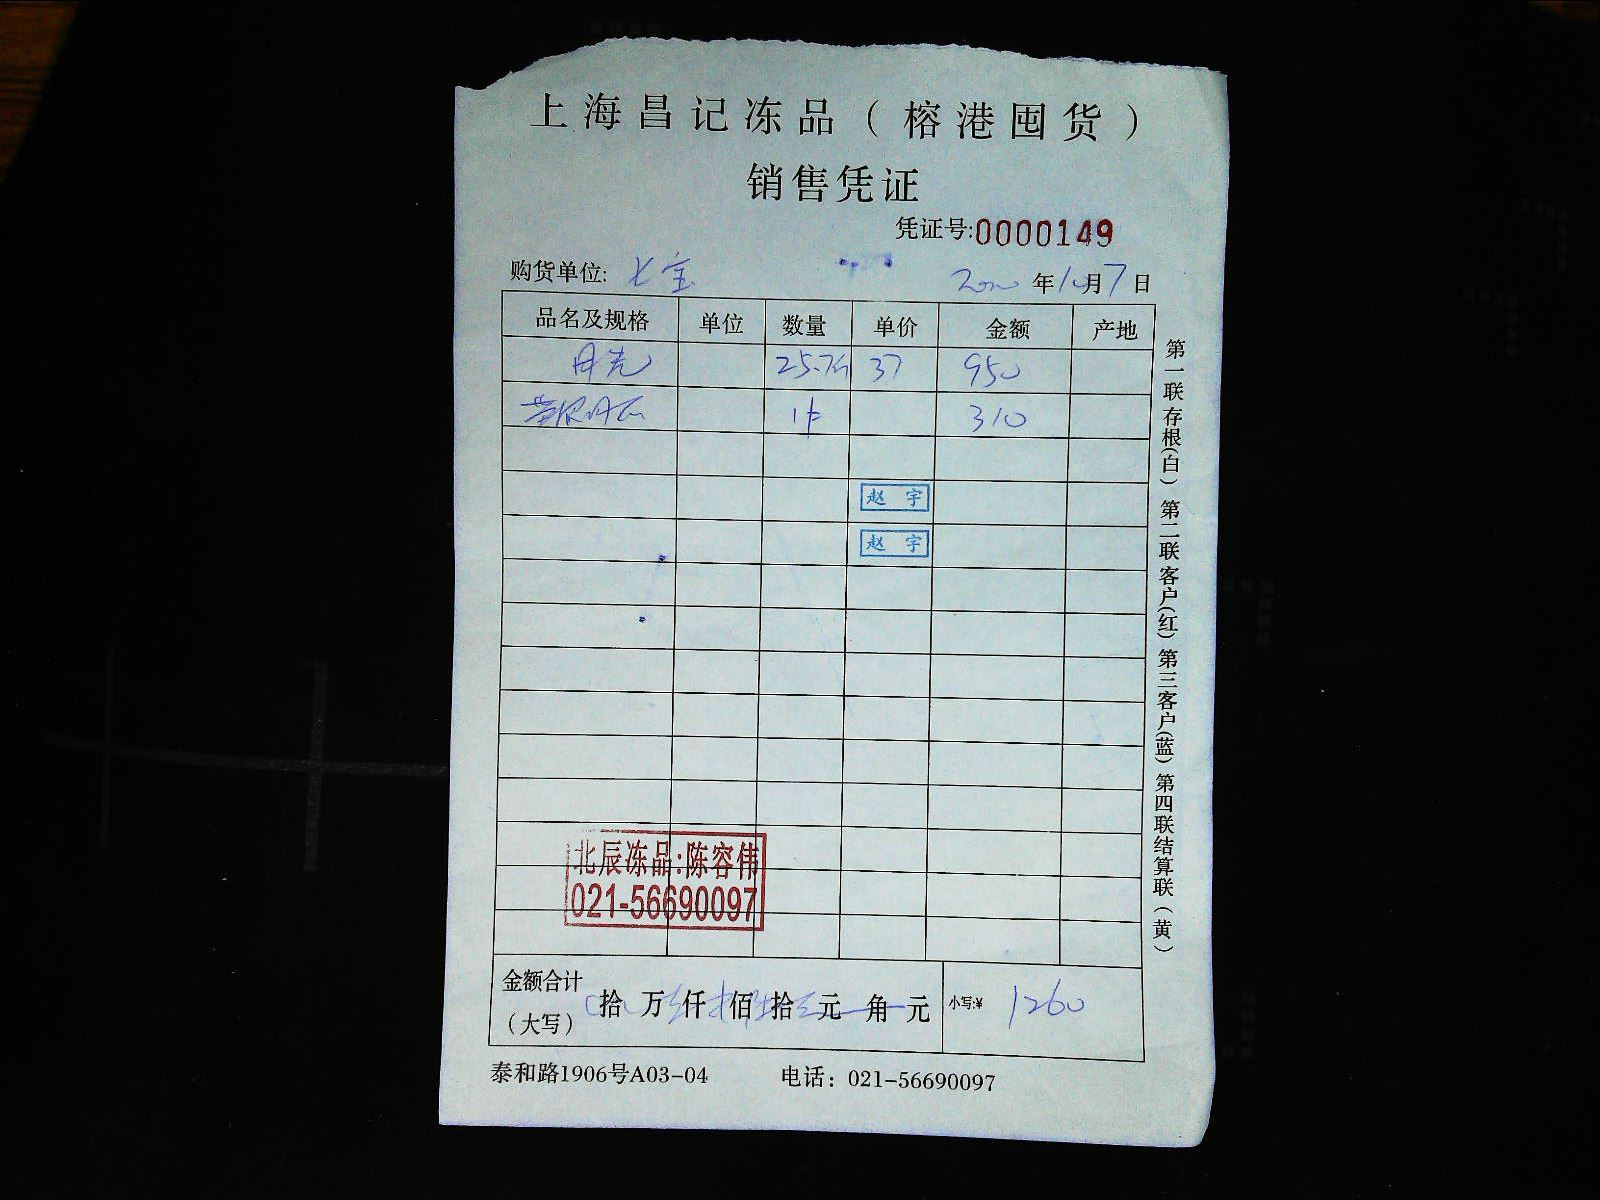 上海昌记冻品（榕港囤货）
销售凭证
凭证号:0000149
购货单位: 七宝 年10月7日
品名及规格 单位 数量 单价 金额 产地
37 950
310
赵宇
赵宇
北辰冻品:陈容伟
021-56690097
金额合计（大写） 拾 万 仟 佰 拾 元 角 元 小写:¥ 1260
泰和路1906号A03-04 电话：021-56690097
第一联存根(白) 第二联客户(红) 第三客户(蓝) 第四联结算联(黄)